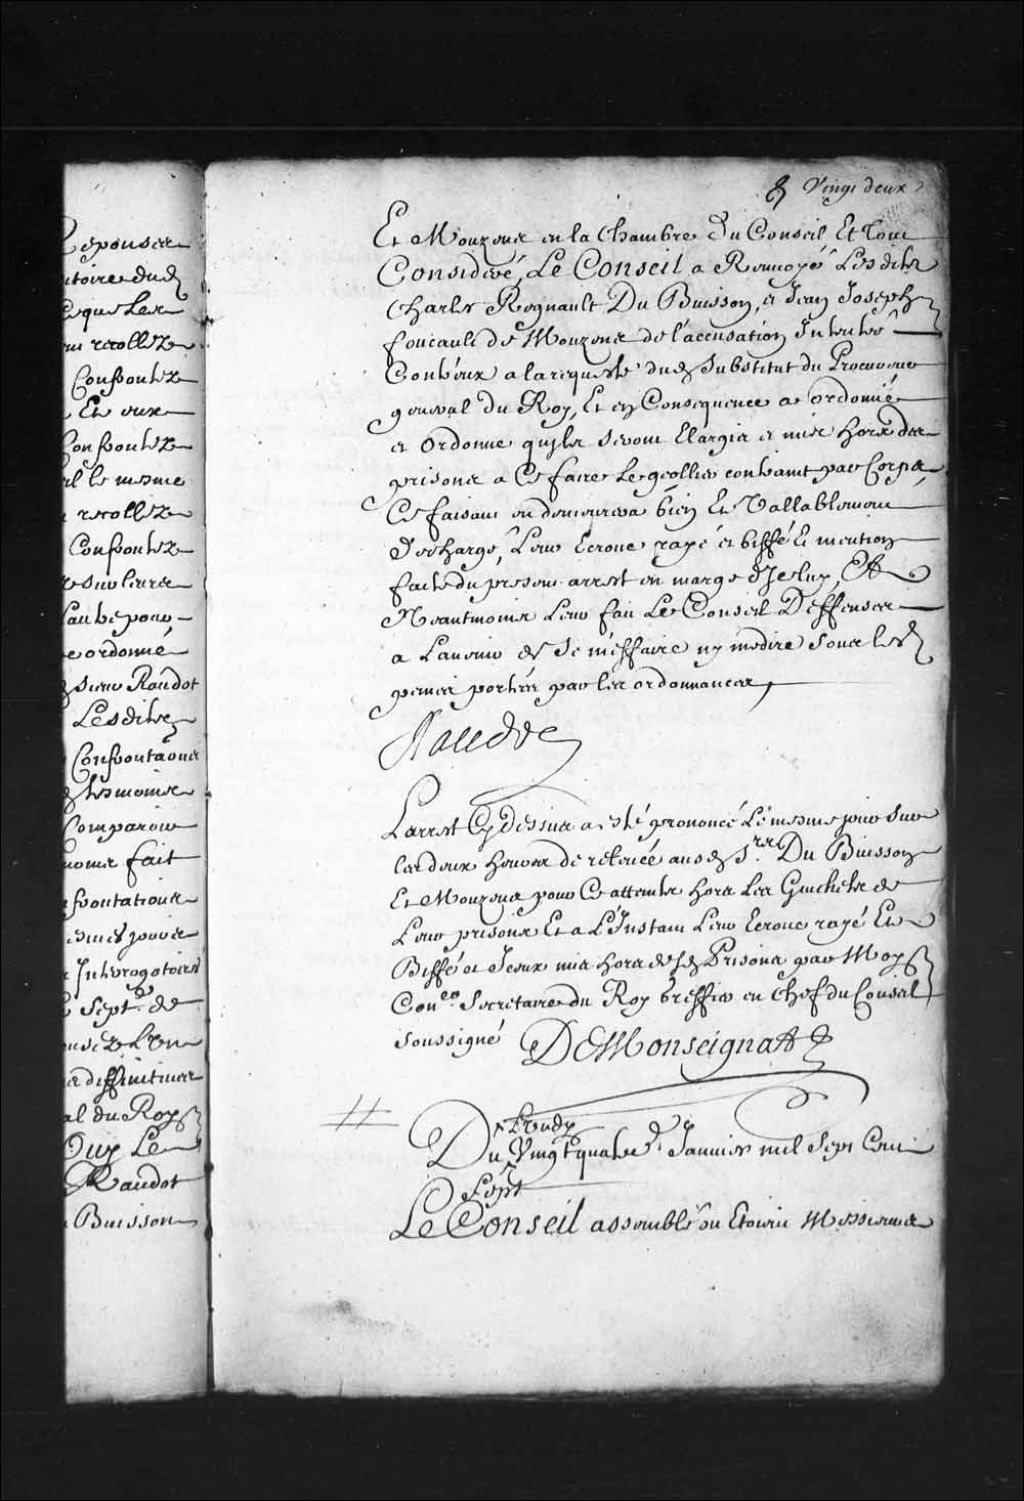 Reponser
itoire dud
equeler
recollez
Confrontez
Et eux
Confrontez
il le mesme
recollez
Confrontez
ordonné
sieur Raudot
Lesdits
Confrontaons
tesmoins
Comparoir
noms fait
frontations
Interogatoires
Sept. de
diffinitives
al du Roy
Ouy Le
Raudot
Buisson
Vingt deux
Et Mouzens en la Chambre du Conseil Et Tout
Consideré, Le Conseil a Renvoyé Lesdits
Charles Regnault Du Buisson, et Jean Joseph
foucault de Mouzens de l'accusation Intentée
Contr'eux a la requeste dud. Substitut du Procureur
general du Roy, Et en Consequence a ordonné
et Ordonne qu'ils seront Elargis et mis hors des
prisons a Ce faire le geollier contraint par Corps
Ce faisant en demeurera bien Et Vallablement
dechargé, Leur Ecroue rayé et biffé Et mention
faite du present arrest en marge d'Jceluy, Et
Neantmoins Leur fait Le Conseil Deffenses
a Lavenir de se meffaire ny medire sous les
peines portées par les ordonnances,
Raudot
Larrest Cy dessus a esté prononcé Le mesme jour sur
les deux heures de relevée ausd. Srs. Du Buisson
Et Mouzens pour Ce attaints hors Les Guichets de
Leurs prisons Et a L'Instant Leur Ecroue rayé Et
Biffé et Jceux mis hors desd. Prisons par Moy
Coner. Secretaire du Roy Greffier en chef du Conseil
soussigné DeMonseignat
Lundy
Du Vingt quatre Janvier mil Sept Cent
Sept
Le Conseil assemblé ou Etoient Messieurs